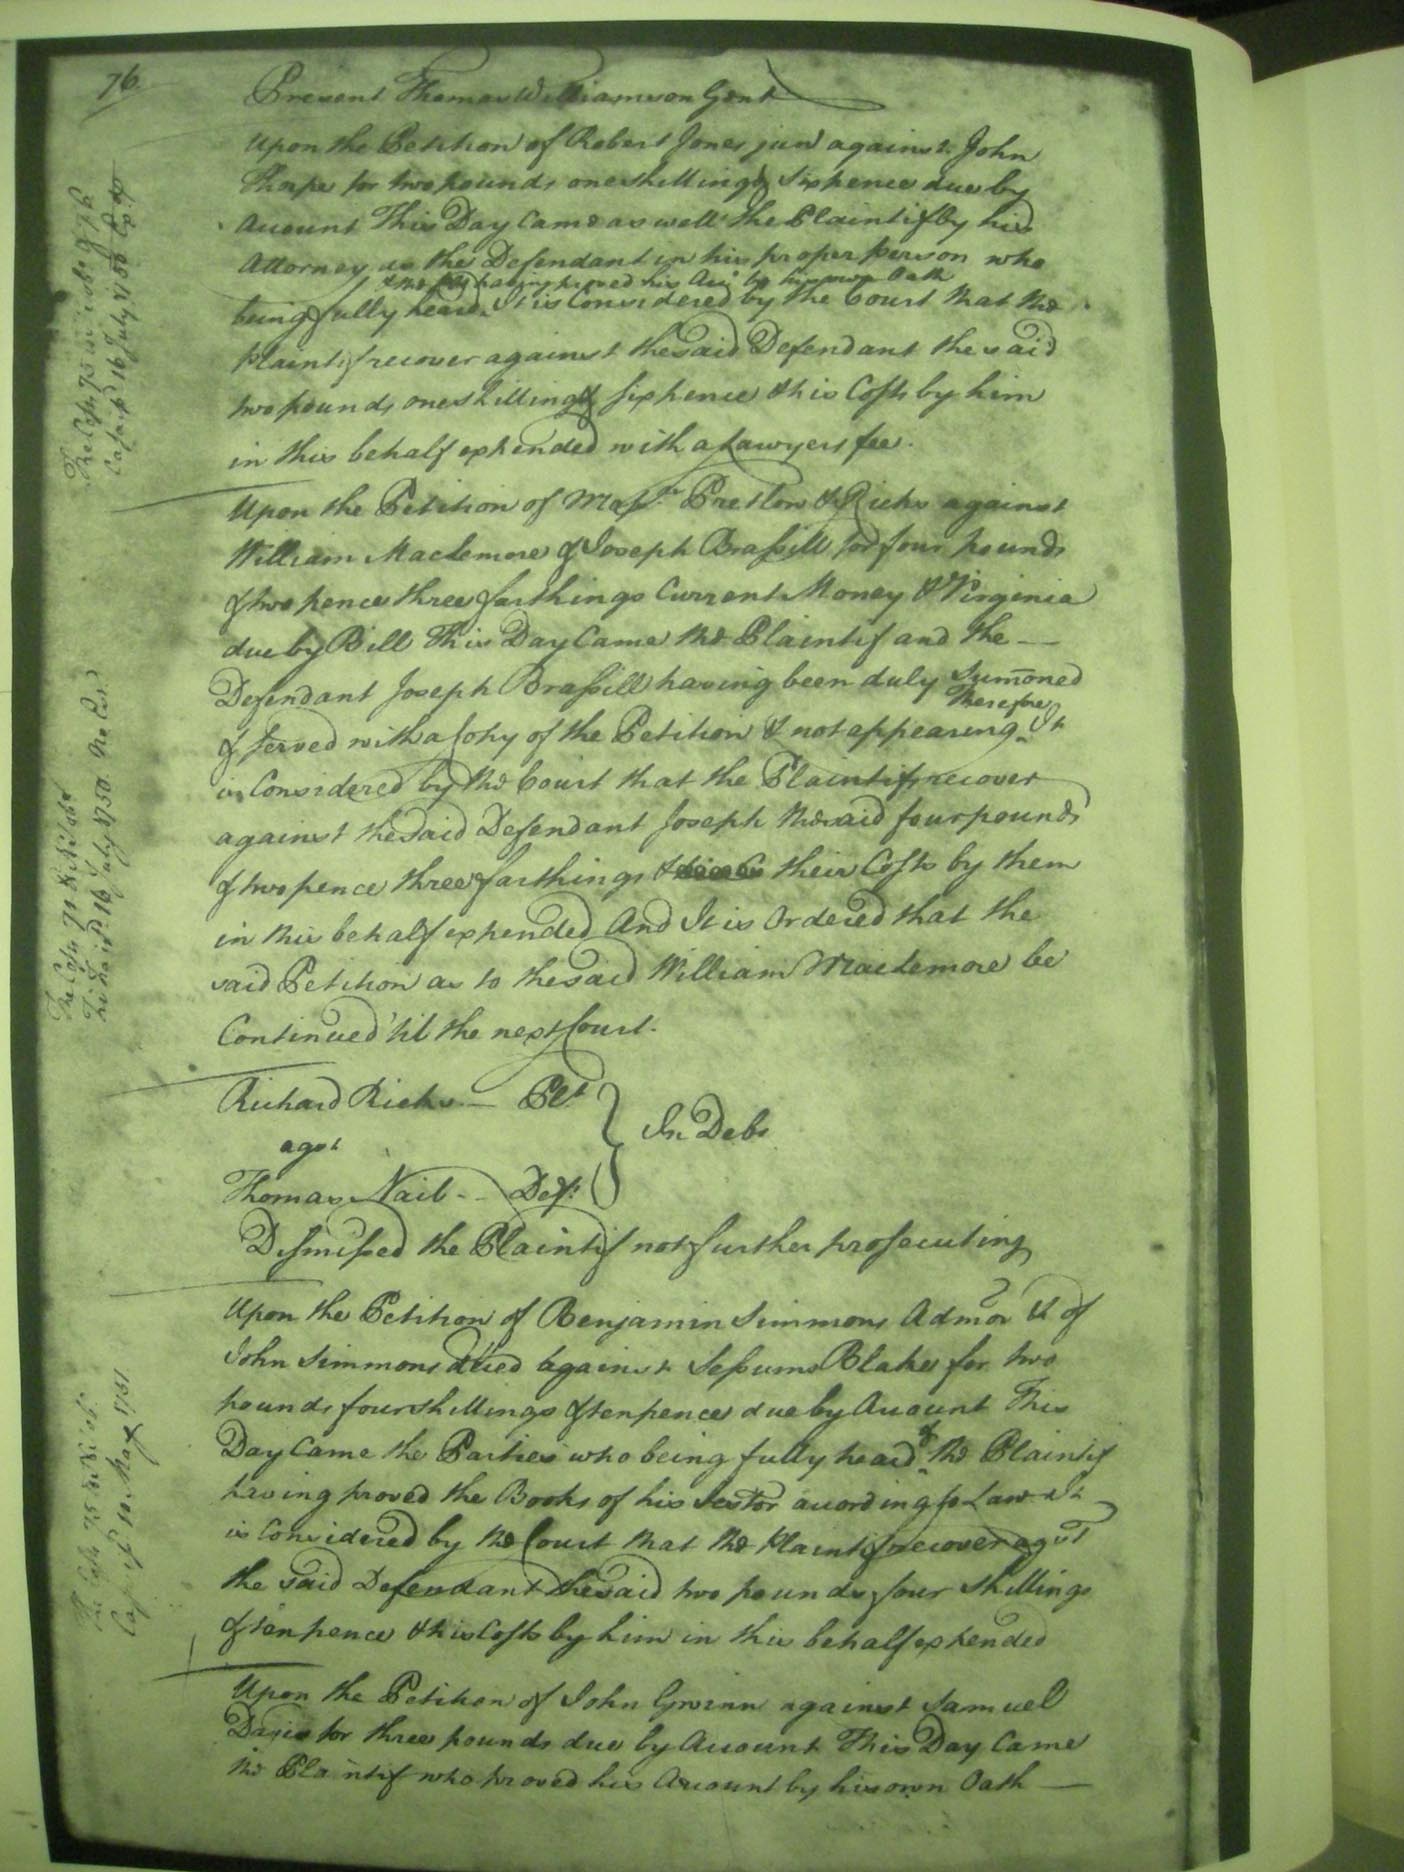 76
Present Thomas Williamson Gent
Upon the Petition of Robert Jones jun.r against John
Thorpe for two pounds one shilling & Sixpence due by
Account This Day Came as well the Plaintif by his
Attorney as the Defendant in his proper person who
& the having proved his Acc.t by his own Oath
being fully heard It is Considered by the Court that the
Plaintif recover against the said Defendant the said
two pounds one shilling & sixpence & his Costs by him
in this behalf expended with a Lawyers fee.
Upon the Petition of Mess.rs Preston & Ricks against
William Maclemore & Joseph Brassill for four pounds
& two pence three farthings Current Money of Virginia
due by Bill This Day Came the Plaintif and the —
Defendant Joseph Brassill having been duly Sumoned
& served with a Copy of the Petition & not appearing Therefore It
is Considered by the Court that the Plaintifs recover
against the said Defendant Joseph the said four pounds
& two pence three farthings & their Costs by them
in this behalf expended And It is Ordered that the
said Petition as to the said William Maclemore be
Continued 'til the next Court.
Richard Ricks — Plt
agst
In Debt
Thomas Nail - - Deft
Dismissed the Plaintif not further prosecuting
Upon the Petition of Benjamin Simmons Admor &c of
John Simmons dced against Sessums Blake for two
pounds four shillings & tenpence due by Account This
Day Came the Parties who being fully heard & the Plaintif
having proved the Books of his Testor according to Law It
is Considered by the Court that the Plaintif recover agst
the said Defendant the said two pounds four shillings
& tenpence & his Costs by him in this behalf expended
Upon the Petition of John Gwinn against Samuel
Davis for three pounds due by Account This Day Came
the Plaintif who proved his Account by his own Oath —
The Costs 75
Ca sa 16 July 1750
The Costs 71
16 July 1750
The Costs 75
Ca sa 10 May 1751